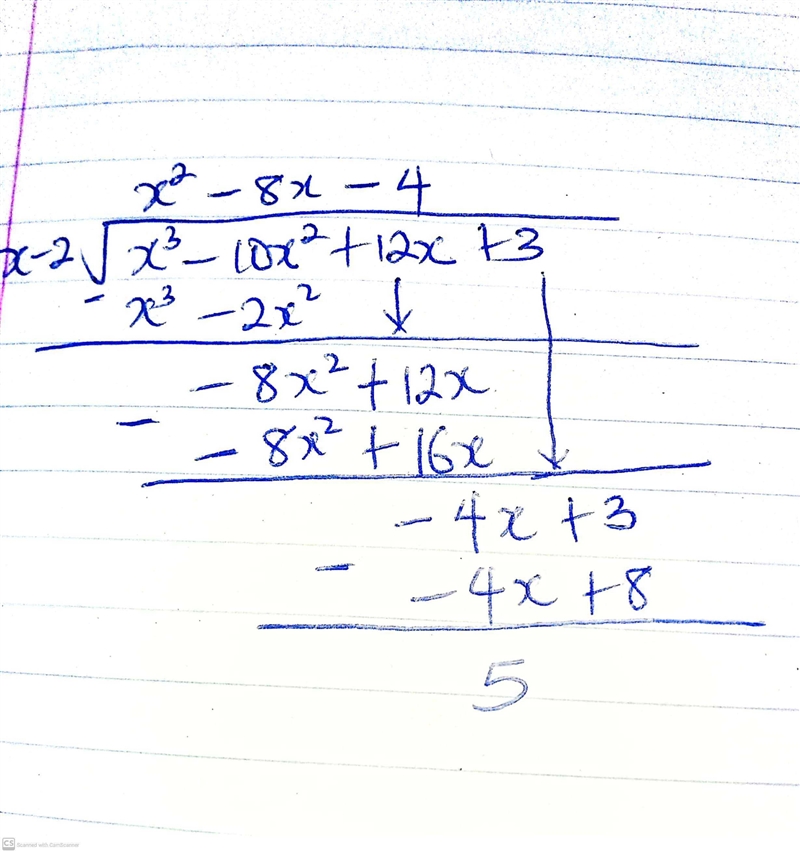 x² - 8x - 4
x-2 √ x³ - 10x² + 12x + 3
- x³ - 2x²
- 8x² + 12x
- - 8x² + 16x
- 4x + 3
- - 4x + 8
5
CS Scanned with CamScanner